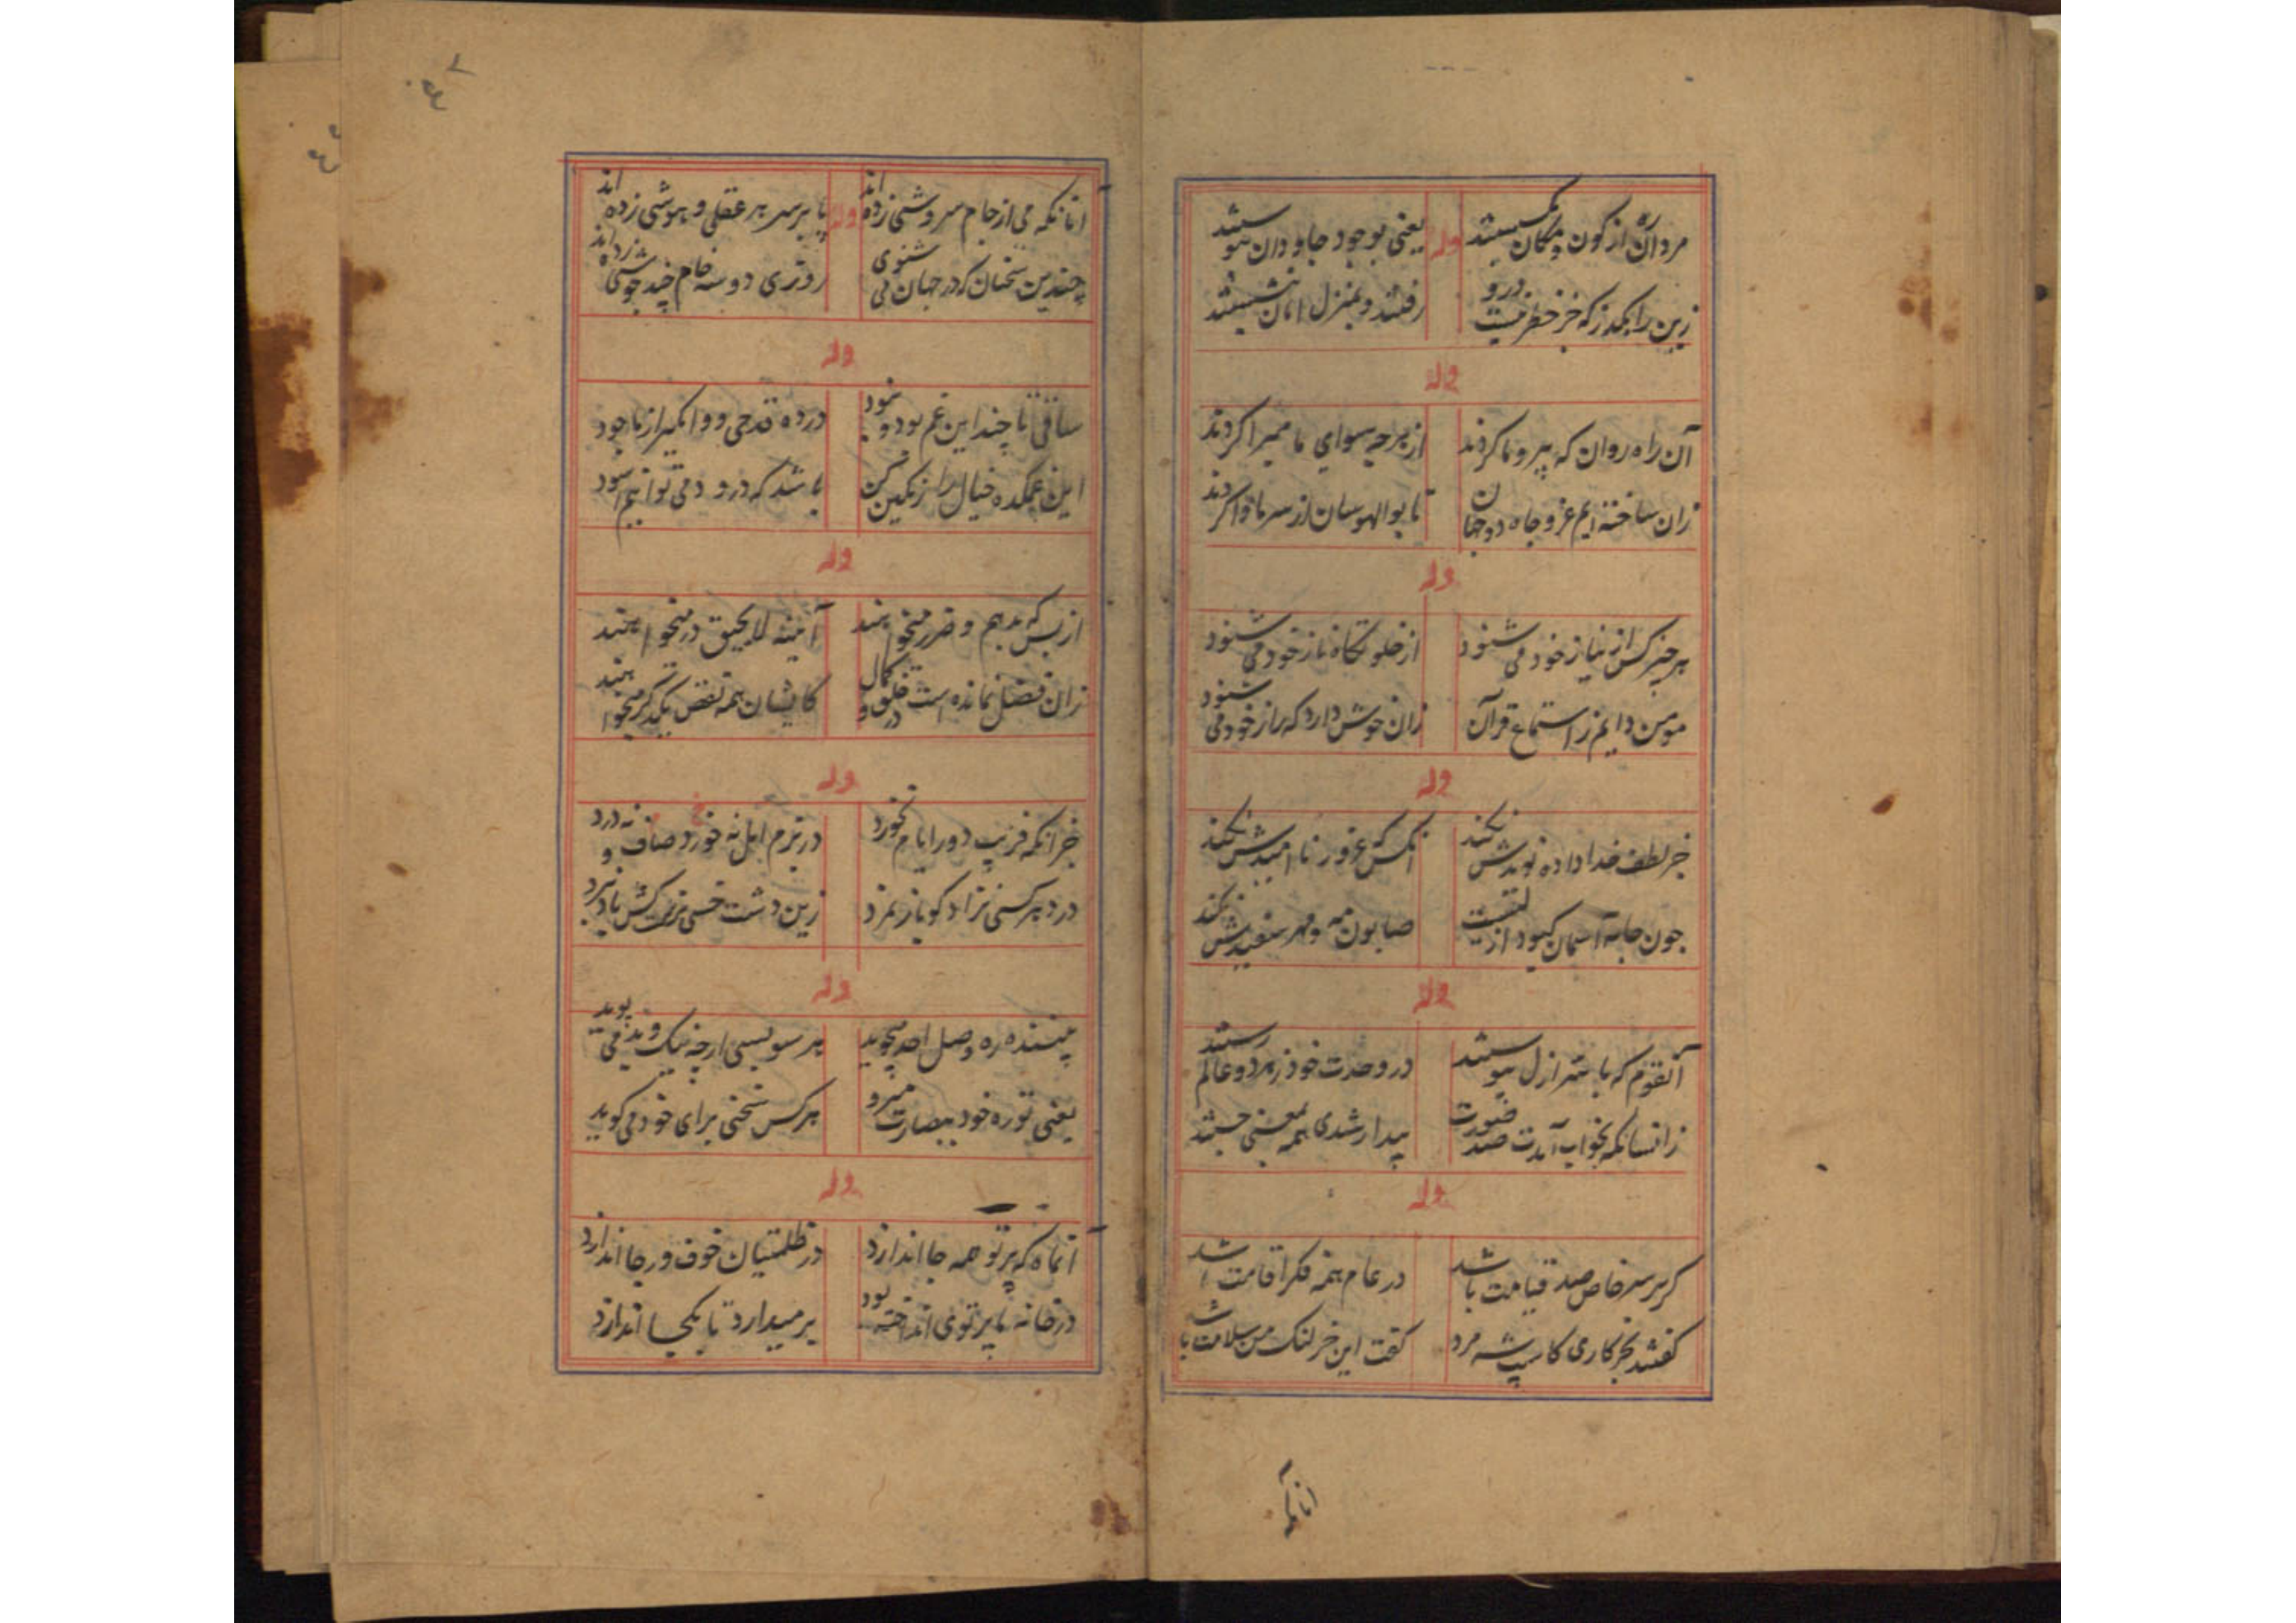 مردان ره از کون و مکان بگسستند
یعنی بوجود جاودان پیوستند
وله
زین را بگذر که جز خطر نیست درو
رفتند و بمنزل امان بنشستند
وله
آن راه روان که پیرو ما کردند
از هرچه سوای ما مبرا کردند
زان ساخته ایم عز و جاه دو جهان
تا بوالهوسان از سر ما وا کردند
وله
هر چیز کس از نیاز خود می شنود
از خلوتگاه ناز خود می شنود
مومن دایم ز استماع قرآن
زان خوش دارد که راز خود می شنود
وله
جز لطف خدا داده نویدش نکند
آنکس که غرور ناامیدش نکند
چون جامه آسمان کبود از
صابون مه و مهر سفیدش نکند
وله
آنقوم که با سر ازل پیوستند
در وحدت خود ز هر دو عالم رستند
زانسانکه بخواب آمدت صد صورت
بیدار شدی همه بمعنی جستند
وله
کر بر سر خاص صد قیامت باشد
در عام همه فکر اقامت باشد
کفتند بخرکاری کاسپ شه مرد
کفت این خر لنک من سلامت باشد
آنانکه
آنانکه می از جام سروشی زده اند
پا بر سر هر عقلی و هوشی زده اند
وله
چندین سخنان که در جهان می شنوی
روزی دو سه خام چند جوشی زده اند
وله
ساقی تا چند این غم بود و نمود
در ده قدحی و واکیر از ما جود
این غمکده خیال را رنکین کن
باشد که درو دمی توانیم آسود
وله
از بس که بدهم و ضرر میخواهند
آیینه در میخواهند
زان فضل نمانده است در خلق و کمال
کایشان همه نقص یکدکر میخواهند
وله
جز آنکه فریب دور ایام نخورد
در بزم امل نه خورد صاف و نه درد
درد هر کسی نزاد کو باز نمرد
زین دشت خسی نرست کش باد نبرد
وله
بیننده ره وصل احد میجوید
هر سو بسی ارچه نیک و بد می پوید
یعنی تو ره خود ببصارت میرو
هر کس سخنی برای خود می کوید
وله
آنماه که پرتو همه جا اندازد
در ظلمتیان خوف و رجا اندازد
در خانه با پرتوی انداخته بود
بر میدارد تا بکجا اندازد